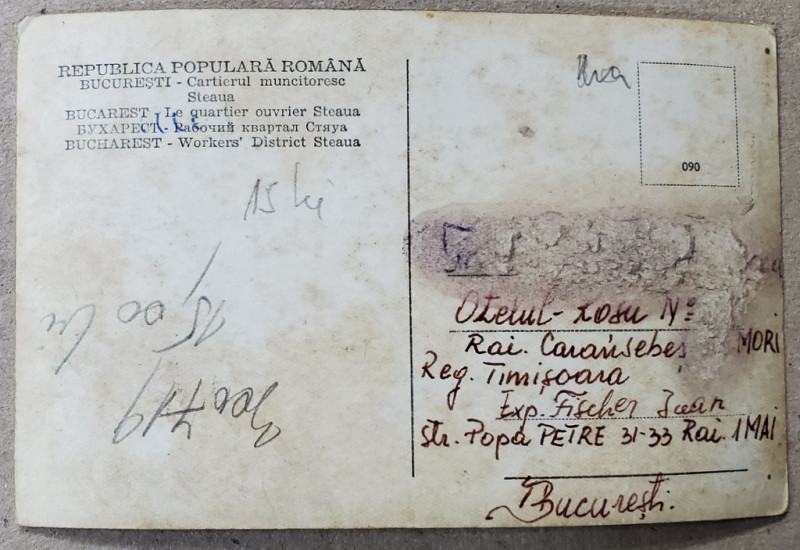 REPUBLICA POPULARĂ ROMÂNĂ
BUCUREȘTI - Cartierul muncitoresc
Steaua
BUCAREST - Le quartier ouvrier Steaua
БУХАРЕСТ - Рабочий квартал Стяуа
BUCHAREST - Workers' District Steaua
15 lei
15,00 lei
090
Oțelul-roșu Nº
Rai. Caransebeș MORI
Reg. Timișoara
Exp. Fischer Iuan
Str. Popa PETRE 31-33 Rai. 1 MAI
București.